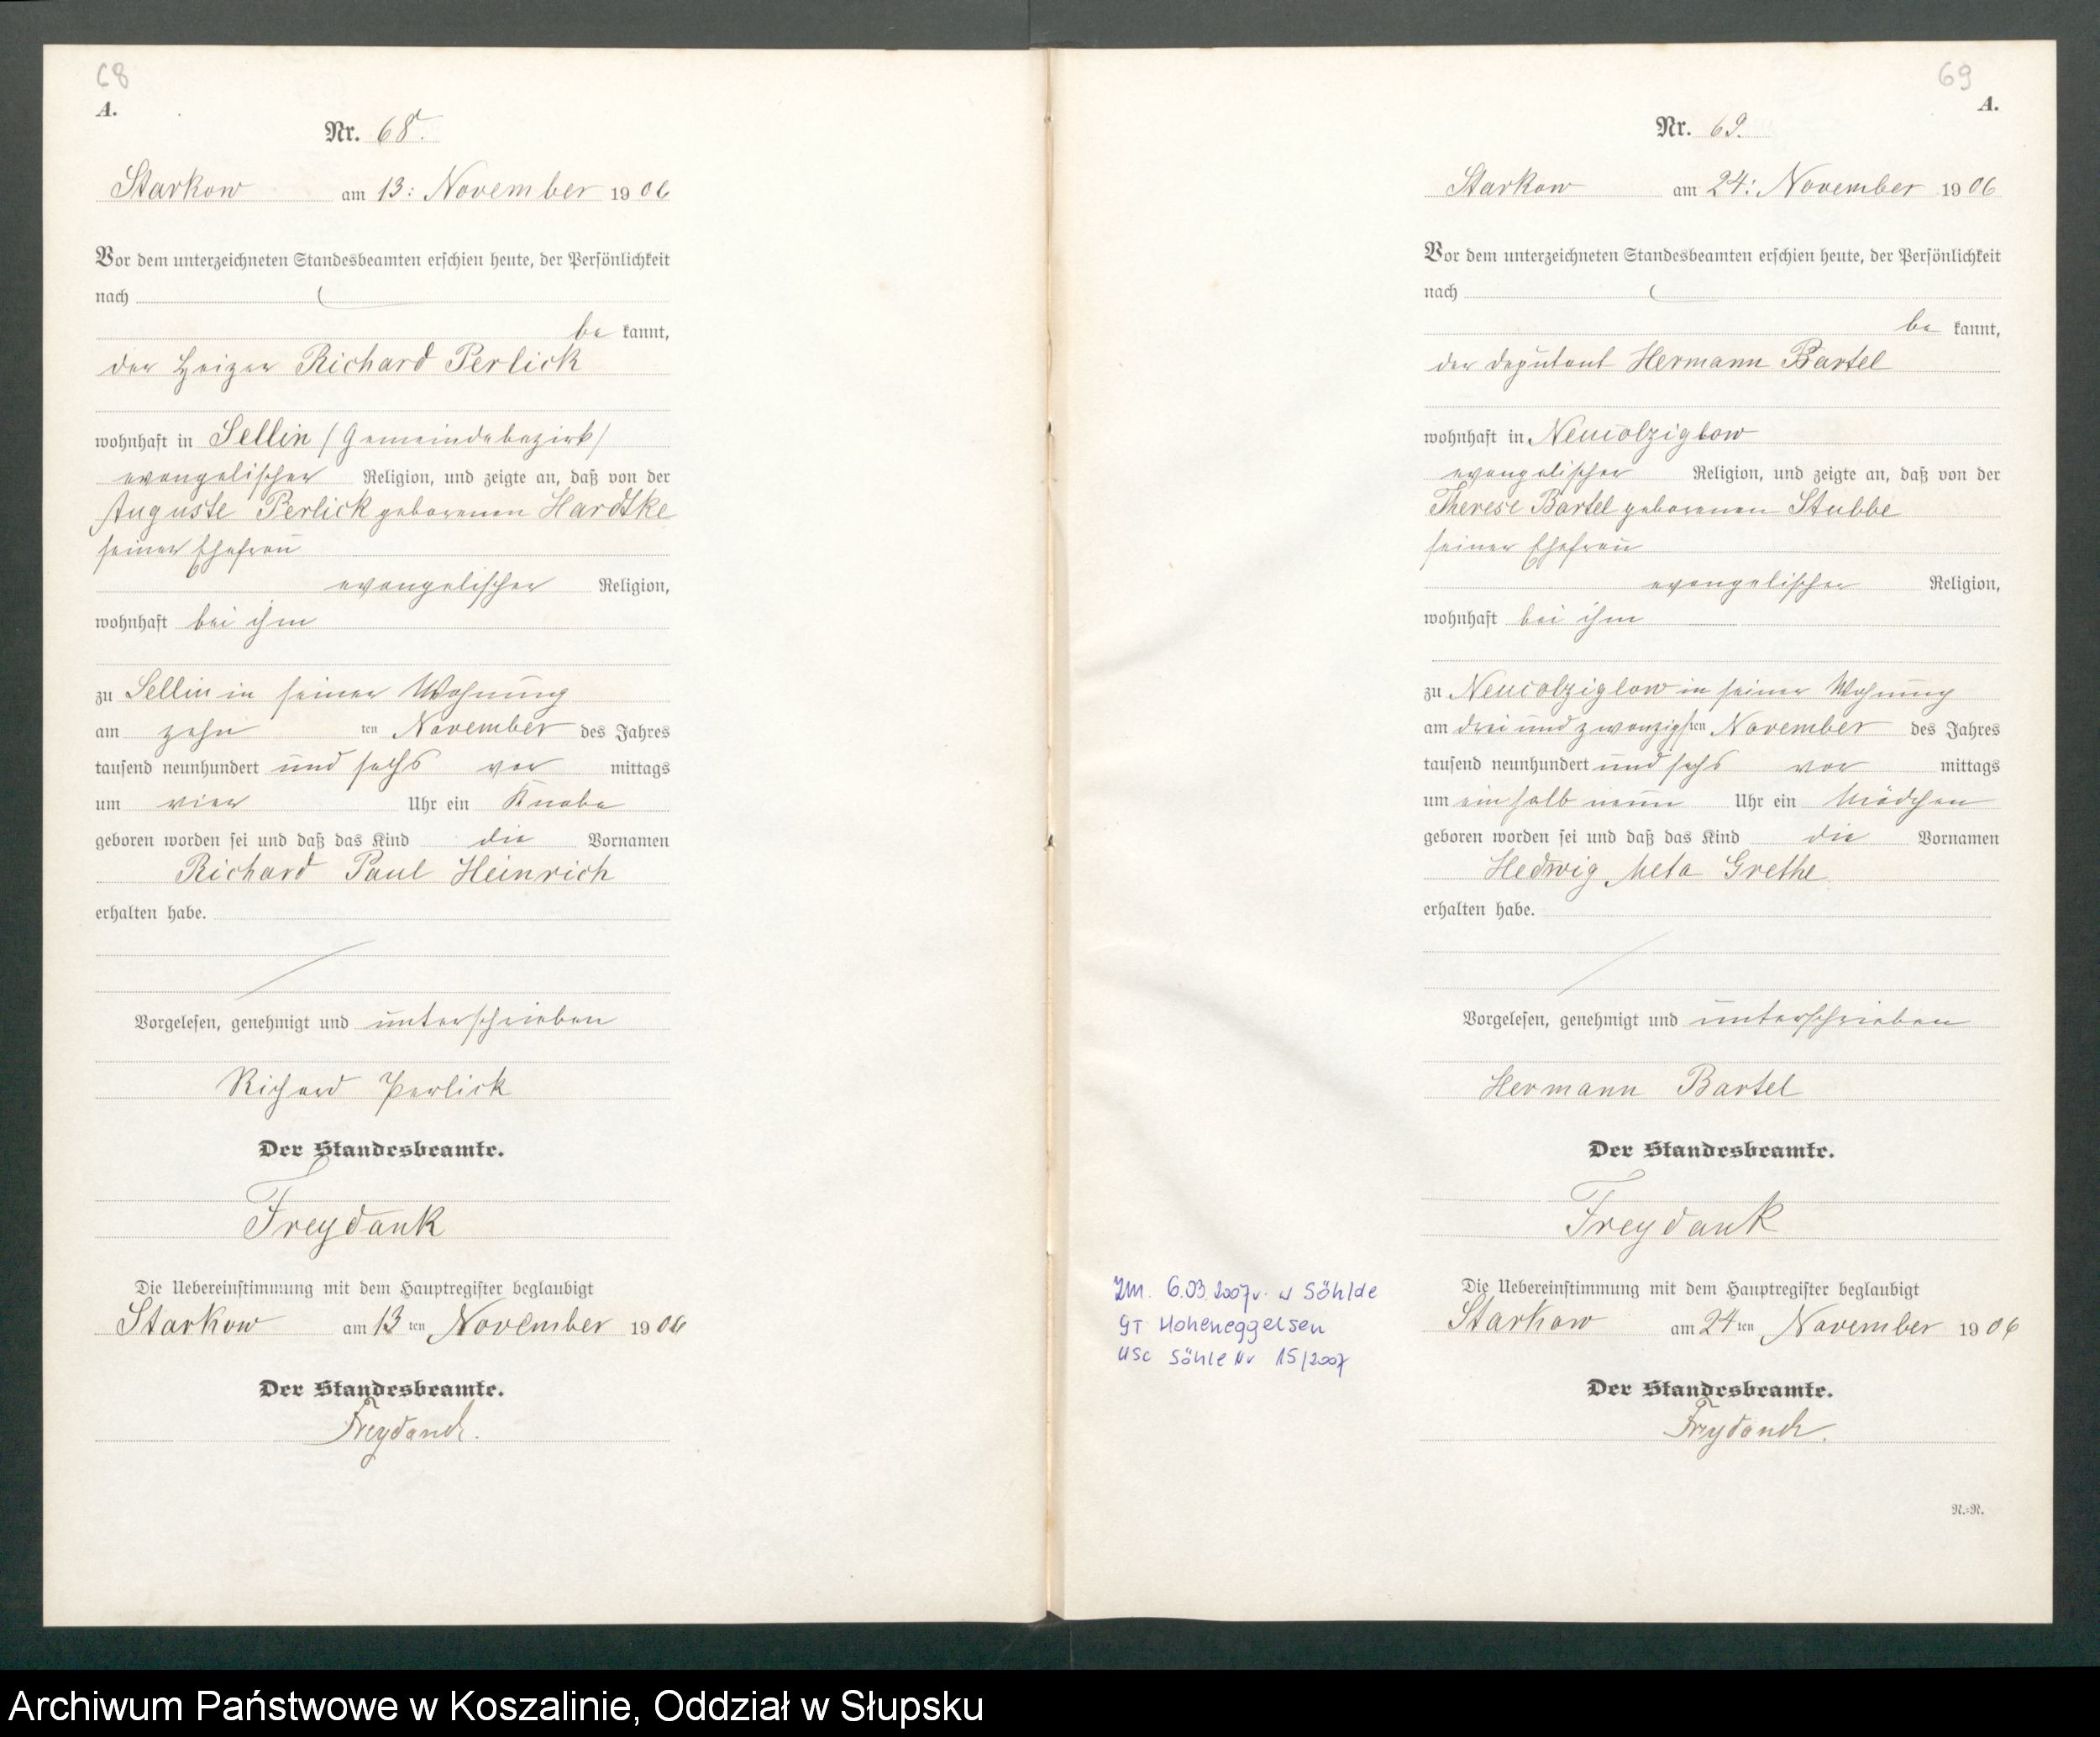 68
A.
Nr. 68.
Starkow am 13: November 1906
Vor dem unterzeichneten Standesbeamten erschien heute, der Persönlichkeit
nach
be kannt,
der Heizer Richard Perlick
wohnhaft in Sellin /Gemeindebezirk/
evangelischer Religion, und zeigte an, daß von der
Auguste Perlick geborenen Hardtke
seiner Ehefrau
evangelischer Religion,
wohnhaft bei ihm
zu Sellin in seiner Wohnung
am zehn ten November des Jahres
tausend neunhundert und sechs vor mittags
um vier Uhr ein Knabe
geboren worden sei und daß das Kind die Vornamen
Richard Paul Heinrich
erhalten habe.
Vorgelesen, genehmigt und unterschrieben
Richard Perlick
Der Standesbeamte.
Freydank
Die Uebereinstimmung mit dem Hauptregister beglaubigt
Starkow am 13 ten November 1906
Der Standesbeamte.
Freydank.
69
A.
Nr. 69.
Starkow am 24: November 1906
Vor dem unterzeichneten Standesbeamten erschien heute, der Persönlichkeit
nach
be kannt,
der Deputant Hermann Bartel
wohnhaft in Neucolziglow
evangelischer Religion, und zeigte an, daß von der
Therese Bartel geborenen Stubbe
seiner Ehefrau
evangelischer Religion,
wohnhaft bei ihm
zu Neucolziglow in seiner Wohnung
am dreiundzwanzigsten November des Jahres
tausend neunhundert und sechs vor mittags
um ein halb neun Uhr ein Mädchen
geboren worden sei und daß das Kind die Vornamen
Hedwig Meta Grethe
erhalten habe.
Vorgelesen, genehmigt und unterschrieben
Hermann Bartel
Der Standesbeamte.
Freydank
Zm. 6.03.2007r. w Söhlde
GT Hoheneggelsen
USC Söhle Nr 15/2007
Die Uebereinstimmung mit dem Hauptregister beglaubigt
Starkow am 24 ten November 1906
Der Standesbeamte.
Freydank.
N.=N.
Archiwum Państwowe w Koszalinie, Oddział w Słupsku